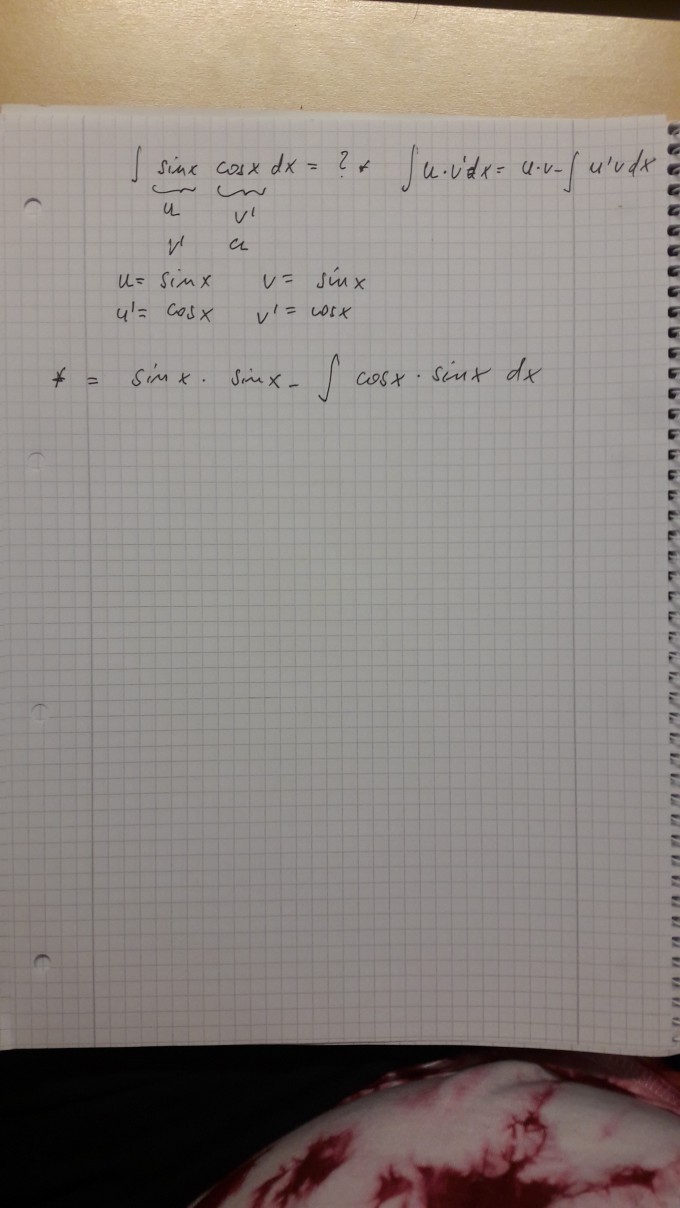 ∫ sinx cosx dx = ? * ∫ u·v'dx = u·v - ∫ u'v dx
u v'
v' u
u = sinx v = sinx
u' = cosx v' = cosx
* = sinx · sinx - ∫ cosx · sinx dx